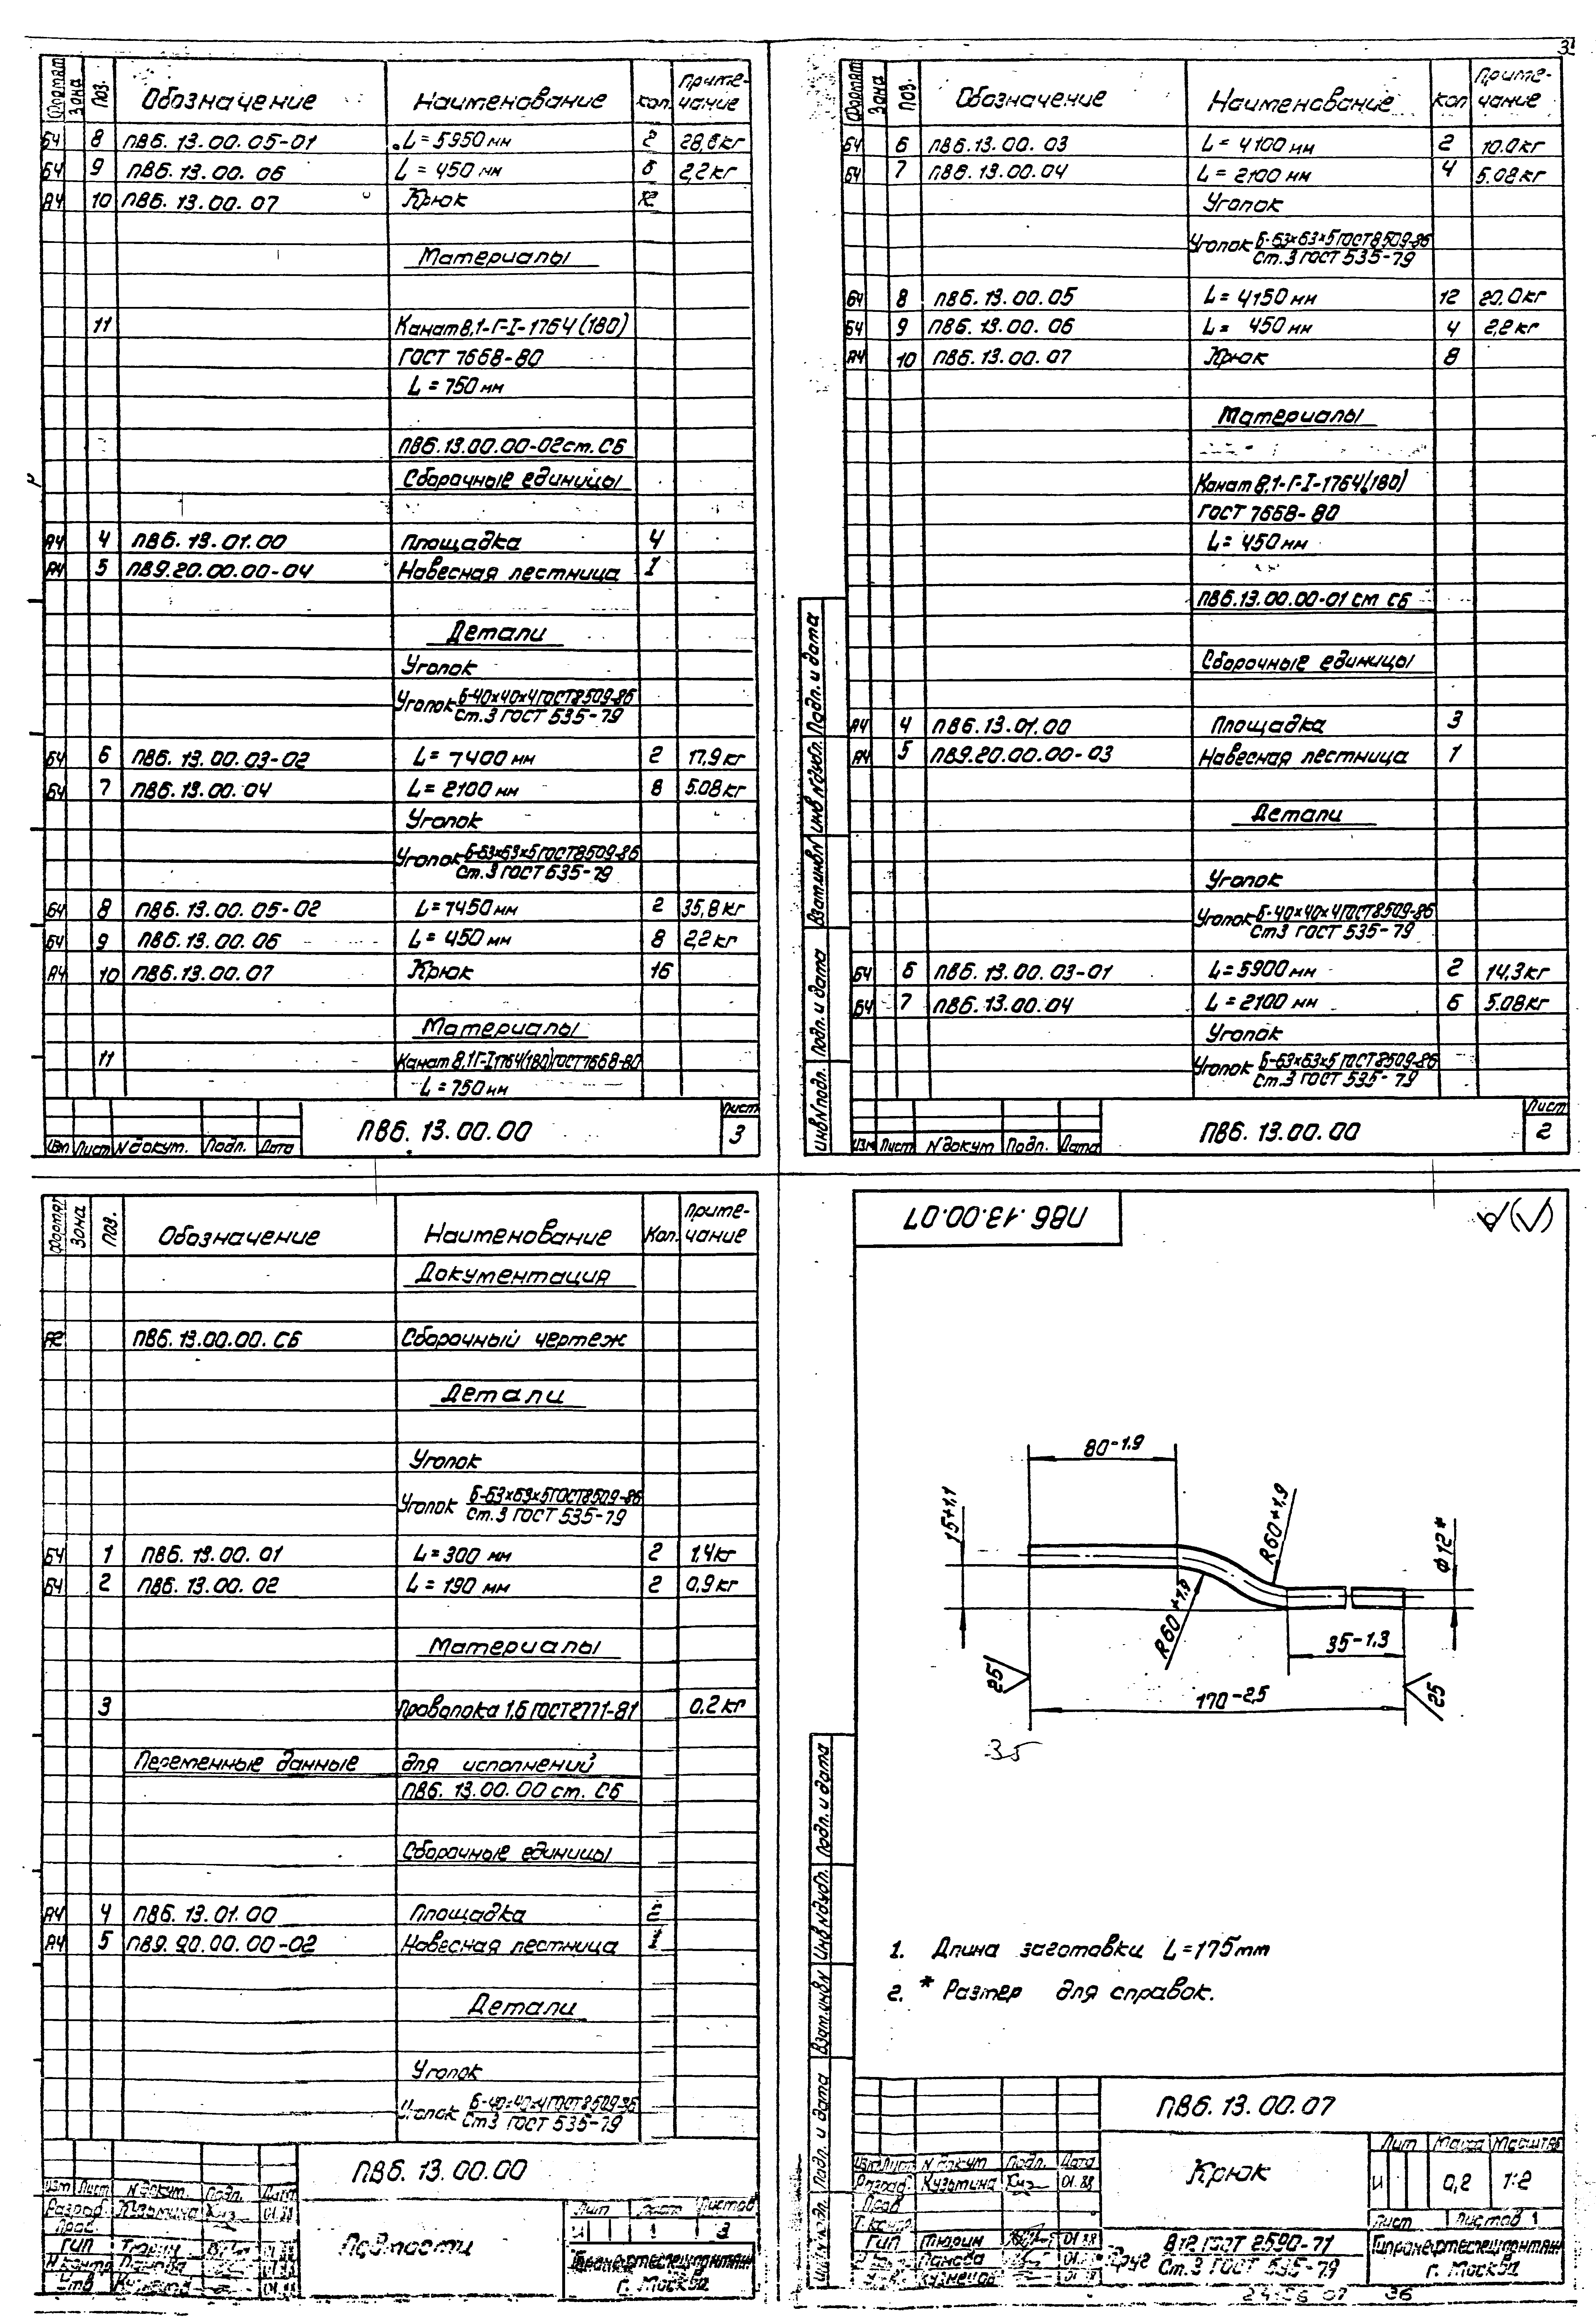 Формат Зона Поз. Обозначение Наименование Кол. Приме-чание
БЧ 8 ПВ6.13.00.05-01 L=5950мм 2 28,6кг
БЧ 9 ПВ6.13.00.06 L=450мм 6 2,2кг
А4 10 ПВ6.13.00.07 Крюк 12
Материалы
11 Канат 8,1-Г-I-1764(180)
ГОСТ 7668-80
L=750мм
ПВ6.13.00.00-02ст.СБ
Сборочные единицы
А4 4 ПВ6.13.01.00 Площадка 4
А4 5 ПВ9.20.00.00-04 Навесная лестница 1
Детали
Уголок
Уголок Б-40×40×4 ГОСТ 8509-86
Ст.3 ГОСТ 535-79
БЧ 6 ПВ6.13.00.03-02 L=7400мм 2 17,9кг
БЧ 7 ПВ6.13.00.04 L=2100мм 8 5.08кг
Уголок
Уголок Б-63×63×5 ГОСТ 8509-86
Ст.3 ГОСТ 535-79
БЧ 8 ПВ6.13.00.05-02 L=7450мм 2 35,8кг
БЧ 9 ПВ6.13.00.06 L=450мм 8 2,2кг
А4 10 ПВ6.13.00.07 Крюк 16
Материалы
11 Канат 8,1Г-I1764(180)ГОСТ7668-80
L=750мм
Изм Лист N докум. Подп. Дата
ПВ6.13.00.00
Лист
3
Формат Зона Поз. Обозначение Наименование Кол Приме-чание
БЧ 6 ПВ6.13.00.03 L=4100мм 2 10.0кг
БЧ 7 ПВ6.13.00.04 L=2100мм 4 5.08кг
Уголок
Уголок Б-63×63×5 ГОСТ 8509-86
Ст.3 ГОСТ 535-79
БЧ 8 ПВ6.13.00.05 L=4150мм 12 20,0кг
БЧ 9 ПВ6.13.00.06 L=450мм 4 2,2кг
А4 10 ПВ6.13.00.07 Крюк 8
Материалы
Канат 8,1-Г-I-1764(180)
ГОСТ 7668-80
L=450мм
ПВ6.13.00.00-01 ст СБ
Сборочные единицы
А4 4 ПВ6.13.01.00 Площадка 3
А4 5 ПВ9.20.00.00-03 Навесная лестница 1
Детали
Уголок
Уголок Б-40×40×4 ГОСТ 8509-86
Ст3 ГОСТ 535-79
БЧ 6 ПВ6.13.00.03-01 L=5900мм 2 14,3кг
БЧ 7 ПВ6.13.00.04 L=2100мм 6 5.08кг
Уголок
Уголок Б-63×63×5 ГОСТ 8509-86
Ст.3 ГОСТ 535-79
Инв N подл. Подп. и дата Взам.инв N Инв N дубл. Подп. и дата
Изм Лист N докум Подп. Дата
ПВ6.13.00.00
Лист
2
Формат Зона Поз. Обозначение Наименование Кол. Приме-чание
Документация
А2 ПВ6.13.00.00.СБ Сборочный чертеж
Детали
Уголок
Уголок Б-63×63×5 ГОСТ 8509-86
Ст.3 ГОСТ 535-79
БЧ 1 ПВ6.13.00.01 L=300мм 2 1,4кг
БЧ 2 ПВ6.13.00.02 L=190мм 2 0,9кг
Материалы
3 Проволока 1,6 ГОСТ 2771-81 0,2кг
Переменные данные для исполнений
ПВ6.13.00.00 ст.СБ
Сборочные единицы
А4 4 ПВ6.13.01.00 Площадка 2
А4 5 ПВ9.20.00.00-02 Навесная лестница 1
Детали
Уголок
Уголок Б-40×40×4 ГОСТ 8509-86
Ст3 ГОСТ 535-79
Изм Лист N докум. Подп. Дата
Разраб. Кузьмина 01.88
Пров.
ГИП Тюрин
Н.контр Панова
Утв 01.88
ПВ6.13.00.00
Подмости
Лит Лист Листов
И 1 3
Гипронефтеспецмонтаж
г. Москва
ПВ6.13.00.07
√(√)
80-1,9
15+1,1
R60+1,9
R60+1,9
ф12*
35-1,3
170-2,5
25
25
35
1. Длина заготовки L=175мм
2. * Размер для справок.
Подп. и дата Взам.инв N Инв N дубл. Подп. и дата
Изм Лист N докум Подп. Дата
Разраб. Кузьмина 01.88
Пров
Т.контр
ГИП Тюрин 01.88
Панова
Кузнецов
ПВ6.13.00.07
Крюк
Лит Масса Масштаб
И 0,2 1:2
Лист Листов 1
Круг В12 ГОСТ 2590-71
Ст.3 ГОСТ 535-79
Гипронефтеспецмонтаж
г. Москва
36